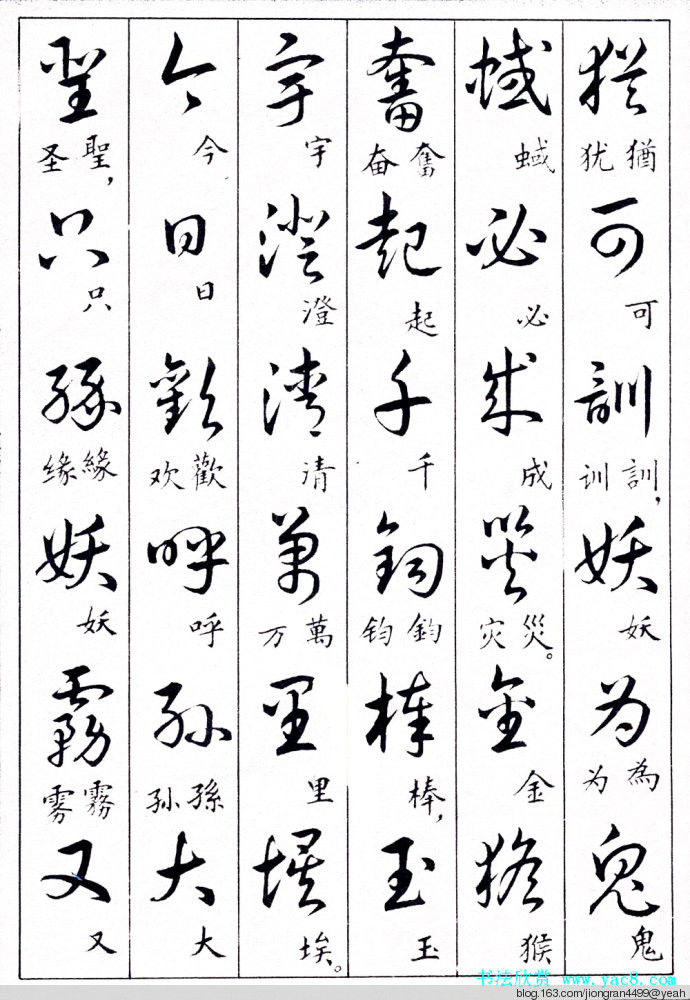 猶 犹 猶 可 可 訓 训 訓， 妖 妖 为 为 為 鬼 鬼
蜮 蜮 必 必 成 成 災 灾 災。 金 金 猴 猴
奮 奋 奮 起 起 千 千 鈞 钧 鈞 棒 棒， 玉 玉
宇 宇 澄 澄 清 清 萬 万 萬 里 里 埃 埃。
今 今 日 日 歡 欢 歡 呼 呼 孫 孙 孫 大 大
聖 圣 聖， 只 只 緣 缘 緣 妖 妖 霧 雾 霧 又 又
书法欣赏 www.yac8.com
blog.163.com/jiongran4499@yeah